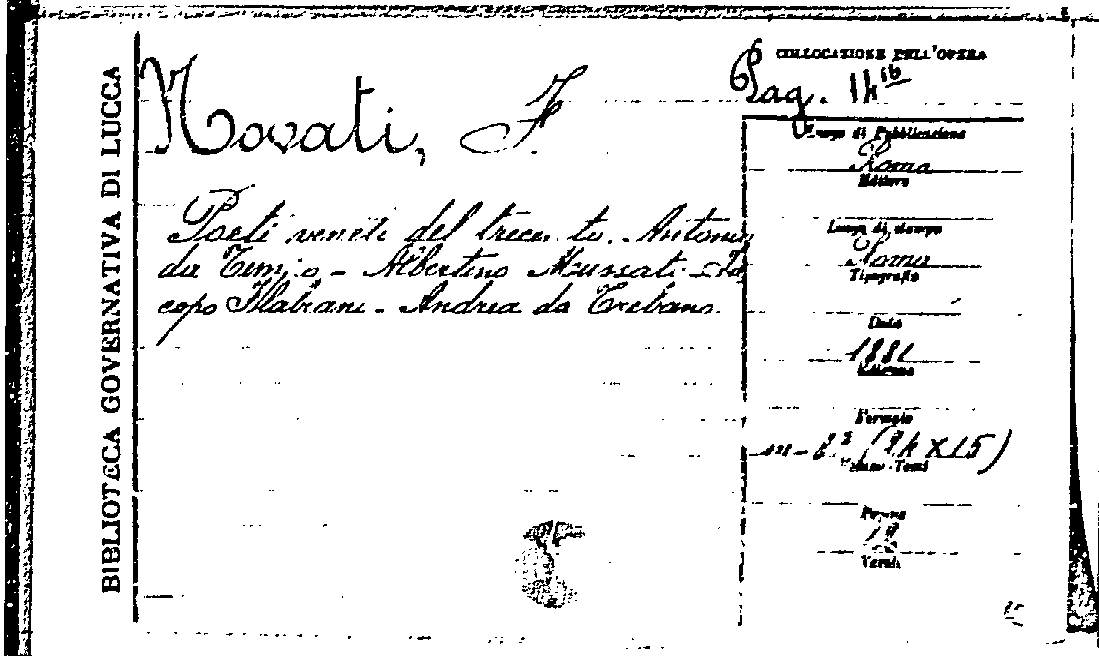 BIBLIOTECA GOVERNATIVA DI LUCCA
Novati, F.
Poeti veneti del trecento. Antonio
da Tempo - Albertino Mussati - Ja
copo Flabiani - Andrea da Trebano.
COLLOCAZIONE DELL'OPERA
Pag. 14
Luogo di Pubblicazione
Roma
Editore
Luogo di stampa
Roma
Tipografia
Data
1881
Edizione
Formato
in-8º (24 X 15)
Volume-Tomi
Pagine
Varah